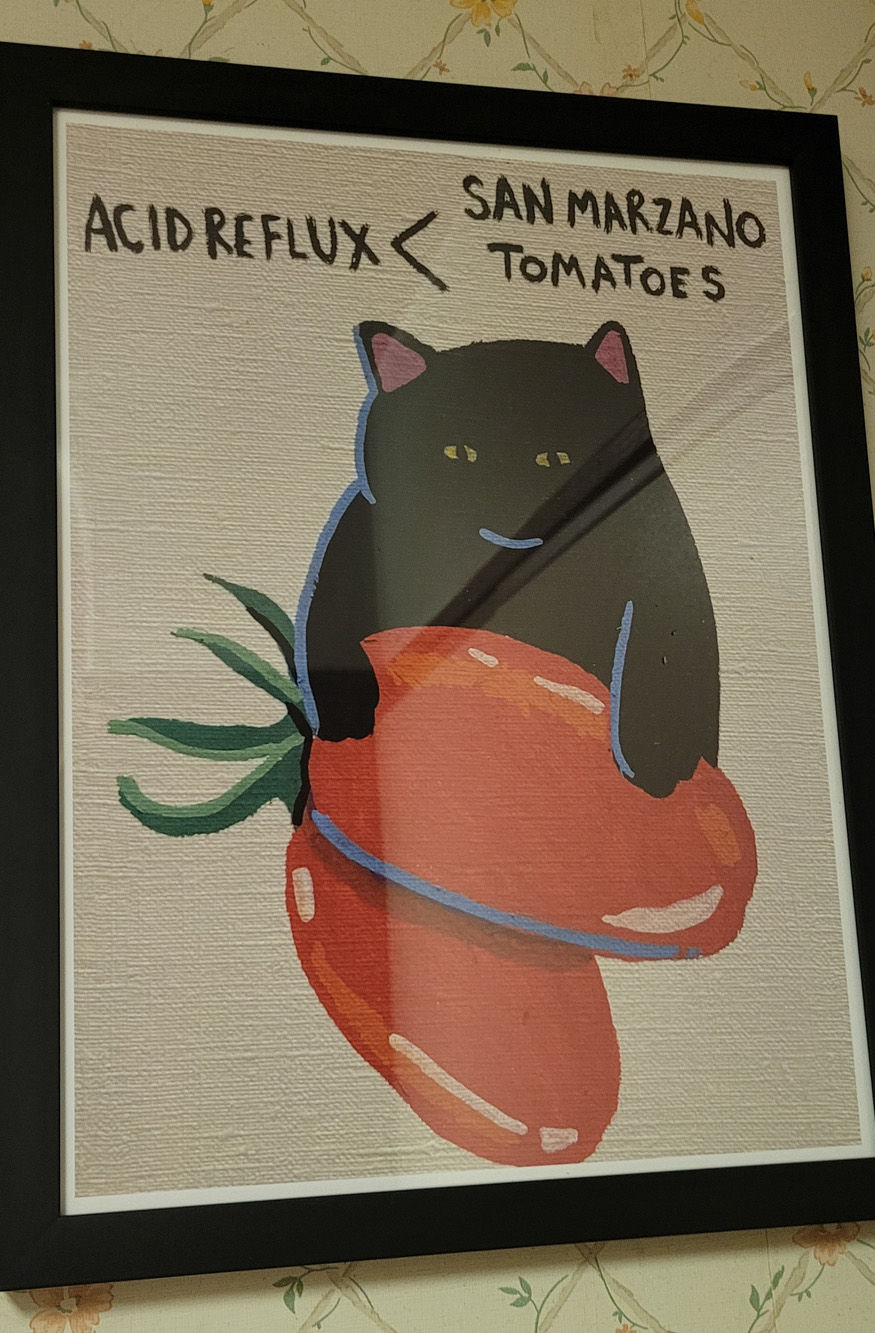 ACID REFLUX < SAN MARZANO
TOMATOES